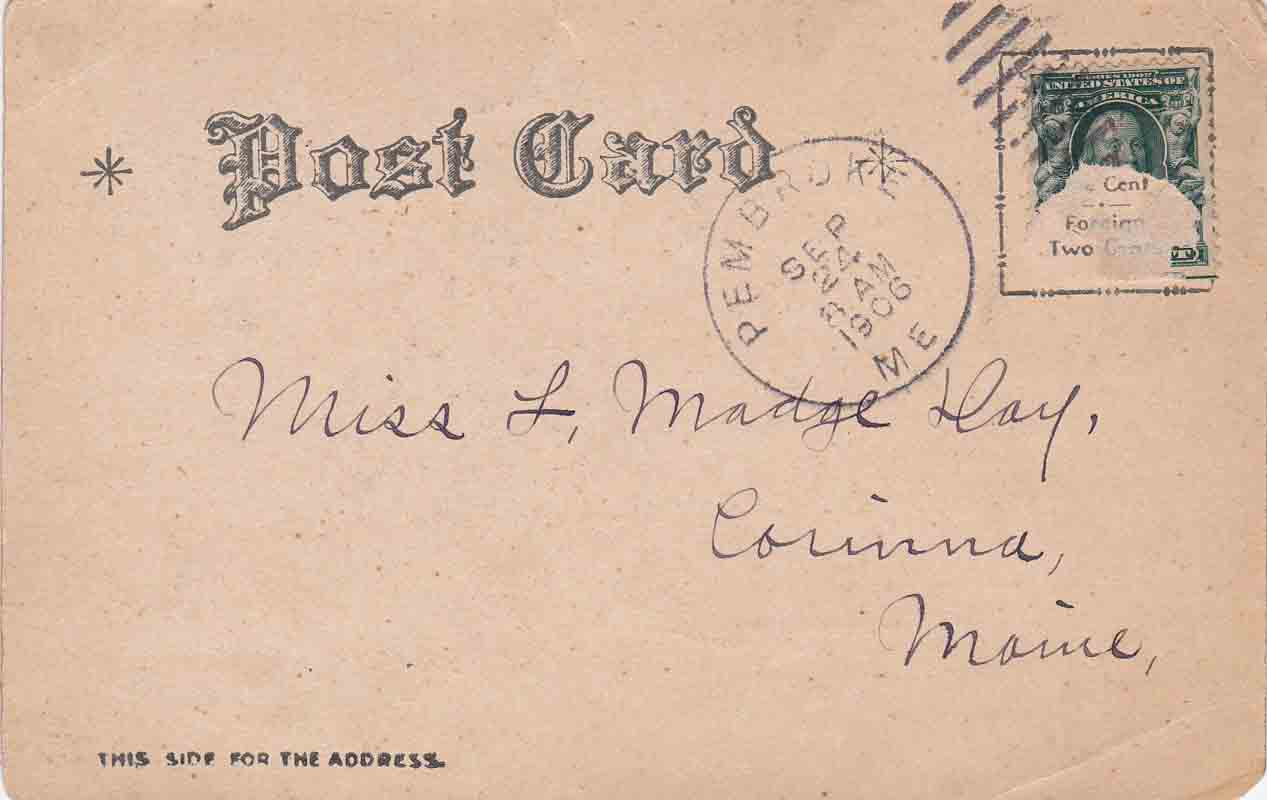 Post Card
SERIES 1902
UNITED STATES OF
AMERICA
Cent
Foreign
Two Cents
PEMBROKE
SEP
24
8 AM
1906
ME
Miss L, Madge Day,
Corinna,
Maine,
THIS SIDE FOR THE ADDRESS.